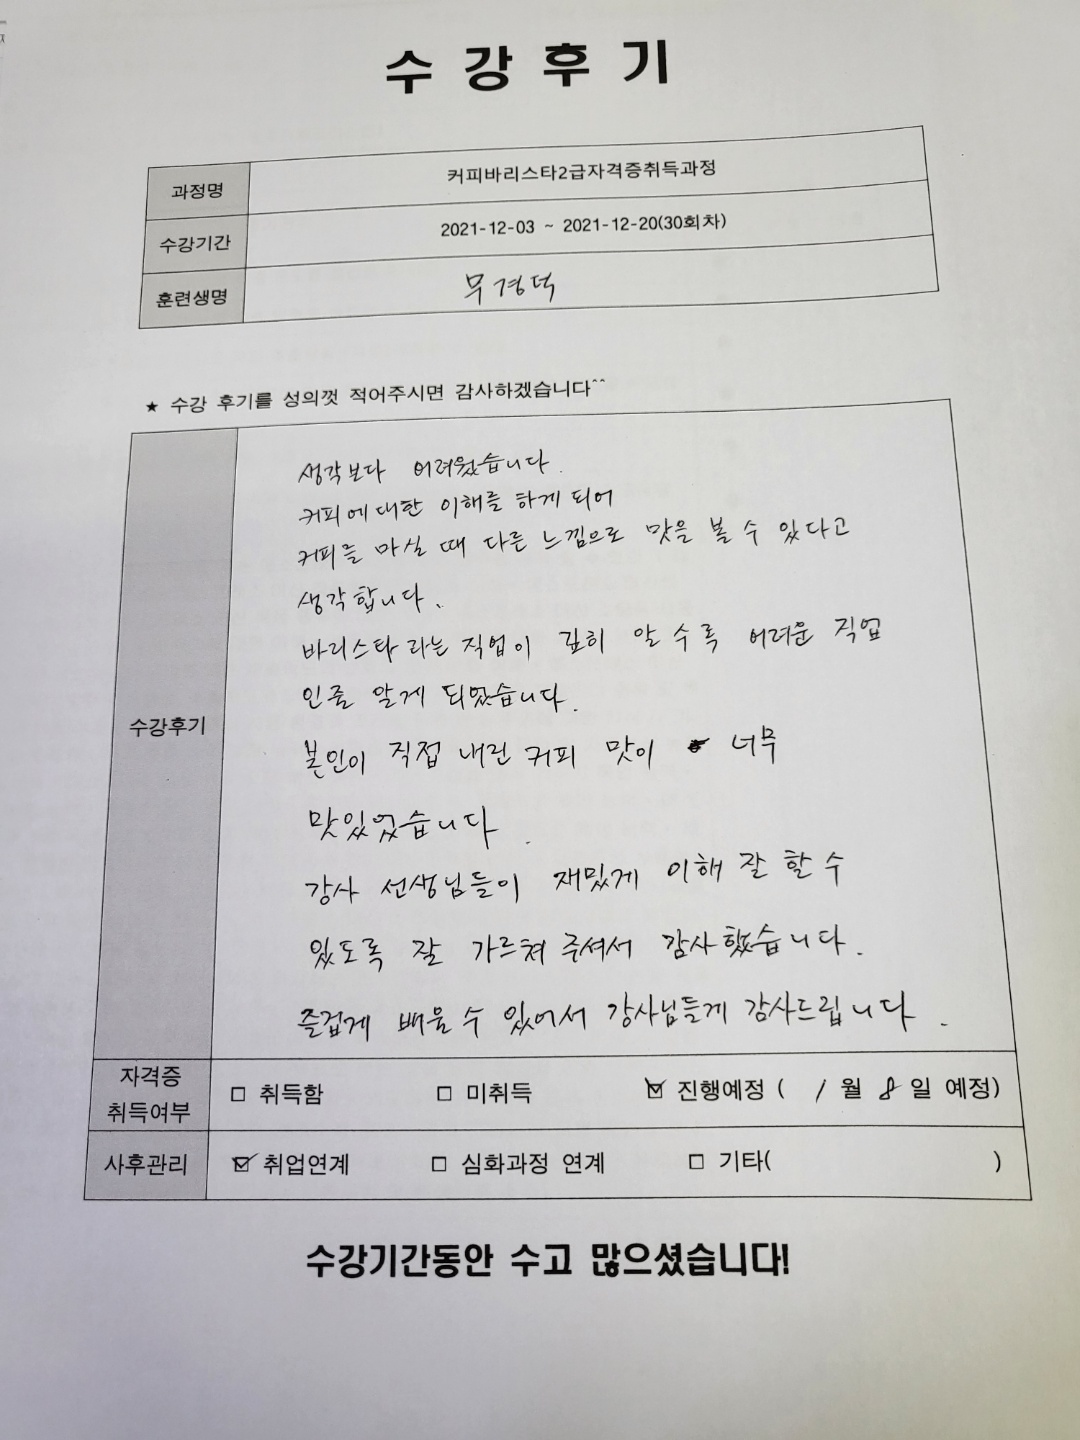 수강후기
과정명 커피바리스타2급자격증취득과정
수강기간 2021-12-03 ~ 2021-12-20(30회차)
훈련생명 무경덕
★ 수강 후기를 성의껏 적어주시면 감사하겠습니다^^
수강후기
생각보다 어려웠습니다.
커피에 대한 이해를 하게 되어
커피를 마실 때 다른 느낌으로 맛을 볼 수 있다고
생각합니다.
바리스타 라는 직업이 깊히 알 수록 어려운 직업
인줄 알게 되었습니다.
본인이 직접 내린 커피 맛이 너무
맛있었습니다.
강사 선생님들이 재밌게 이해 잘 할 수
있도록 잘 가르쳐 주셔서 감사했습니다.
즐겁게 배울 수 있어서 강사님들게 감사드립니다.
자격증 취득여부 □ 취득함 □ 미취득 ☑ 진행예정 ( 1월 8일 예정)
사후관리 ☑ 취업연계 □ 심화과정 연계 □ 기타( )
수강기간동안 수고 많으셨습니다!